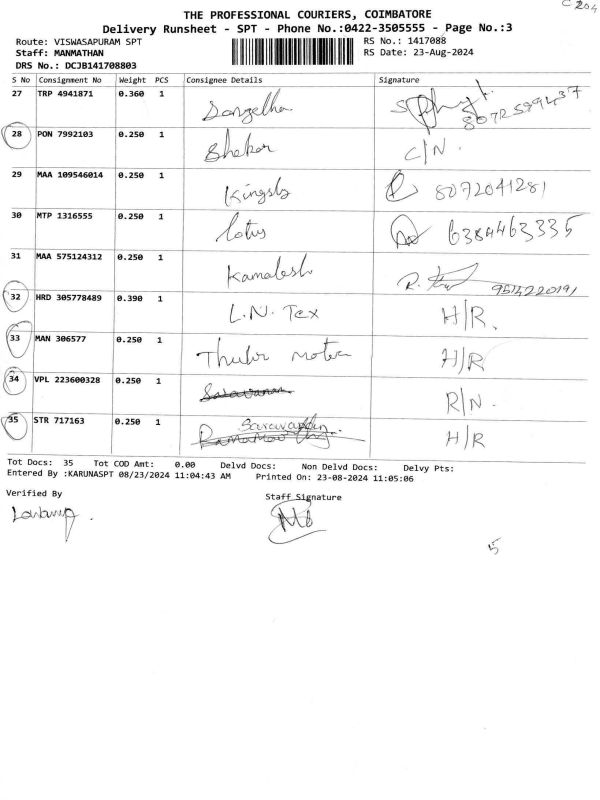 C 204
THE PROFESSIONAL COURIERS, COIMBATORE
Delivery Runsheet - SPT - Phone No.:0422-3505555 - Page No.:3
Route: VISWASAPURAM SPT RS No.: 1417088
Staff: MANMATHAN RS Date: 23-Aug-2024
DRS No.: DCJB141708803
S No Consignment No Weight PCS Consignee Details Signature
27 TRP 4941871 0.360 1
28 PON 7992103 0.250 1 Shekar C/N.
29 MAA 109546014 0.250 1 8072041281
30 MTP 1316555 0.250 1 lotus 6384463335
31 MAA 575124312 0.250 1 Kamalesh
32 HRD 305778489 0.390 1 L.N. Tex H/R.
33 MAN 306577 0.250 1 H/R
34 VPL 223600328 0.250 1 Saravanan R/N.
35 STR 717163 0.250 1 H/R
Tot Docs: 35 Tot COD Amt: 0.00 Delvd Docs: Non Delvd Docs: Delvy Pts:
Entered By :KARUNASPT 08/23/2024 11:04:43 AM Printed On: 23-08-2024 11:05:06
Verified By Staff Signature
5